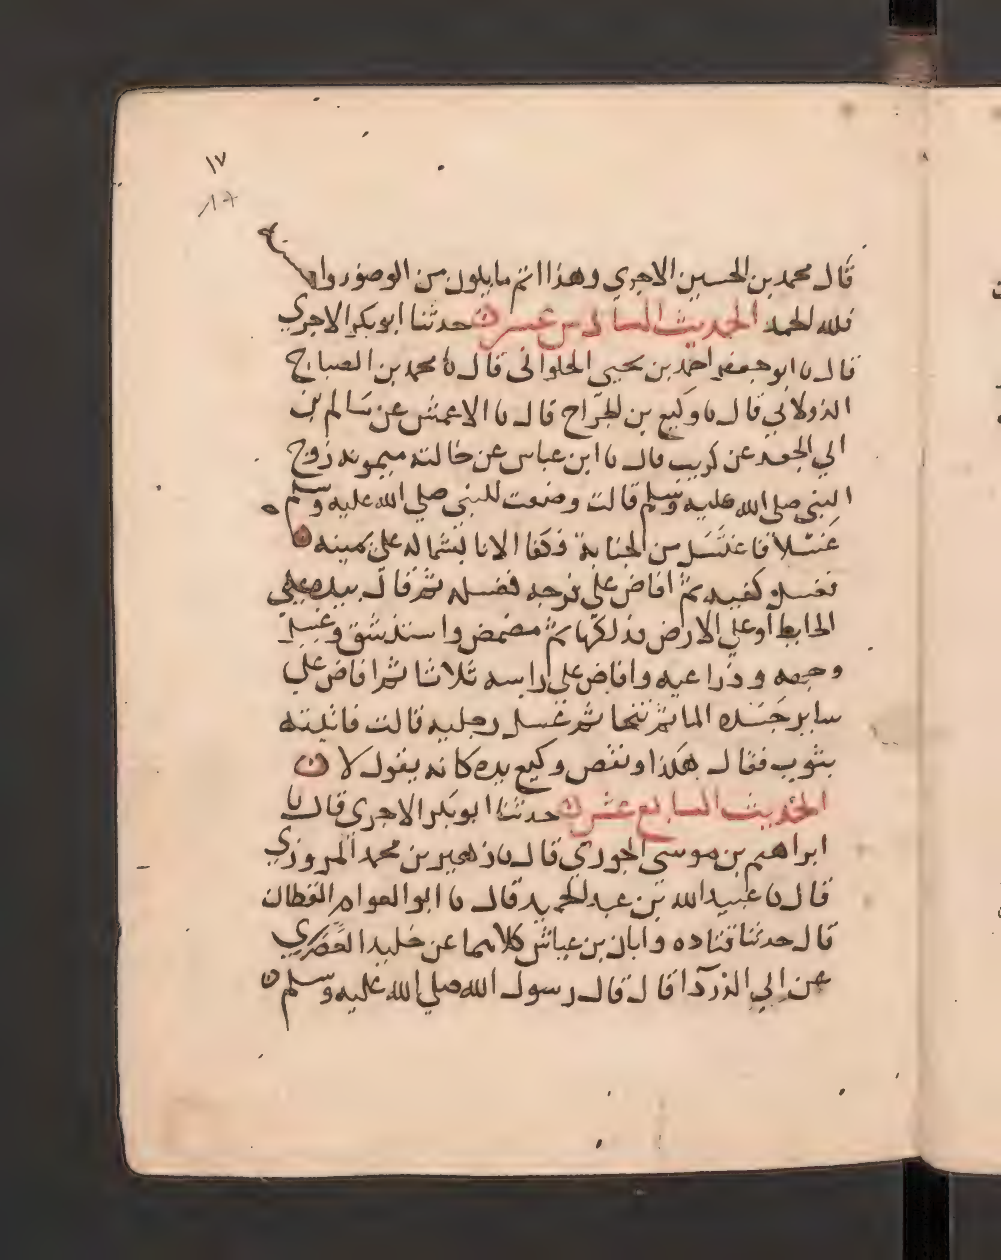 ١٧
١٧
قال محمد بن الحسين الاجري وهذا اتم ما يكون من الوضوء واحسنه
فلله الحمد الحديث السادس عشر حدثنا ابو بكر الاجري
قال نا ابو جعفر احمد بن يحيى الحلواني قال نا محمد بن الصباح
الدولابي قال نا وكيع بن الجراح قال نا الاعمش عن سالم بن
ابي الجعد عن كريب قال نا ابن عباس عن خالته ميمونه زوج
النبي صلى الله عليه وسلم قالت وضعت للنبي صلي الله عليه وسلم
غسلا فاغتسل من الجنابة فكفا الانا بشماله على يمينه
فغسل كفيه ثم افاض علي فرجه فغسله ثم قال بيده على
الحايط او علي الارض فدلكها ثم مضمض واستنشق وغسل
وجهه وذراعيه وافاض على راسه ثلاثا ثم افاض علي
ساير جسده الما ثم تنحا ثم غسل رجليه قالت فاتيته
بثوب فقال هكذا ونفض وكيع يده كانه يقول لا
الحديث السابع عشر حدثنا ابو بكر الاجرى قال نا
ابراهيم بن موسى الجوزي قال نا زهير بن محمد المروزي
قال نا عبيد الله بن عبد المجيد قال نا ابو العوام القطان
قال حدثنا قتاده وابان بن عياش كلاهما عن خليد العصري
عن ابي الدردآ قال قال رسول الله صلي الله عليه وسلم